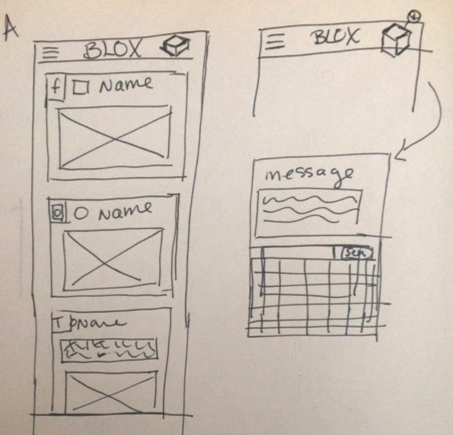 A
BLOX
f Name
Name
T Name
BLOX
message